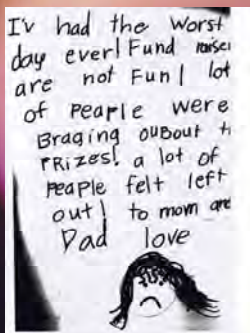 I'v had the worst
day ever! Fund raiser
are not Fun! lot
of peaple were
Braging ouBout th
PRizes! a lot of
peaple felt left
out! to mom and
Dad love